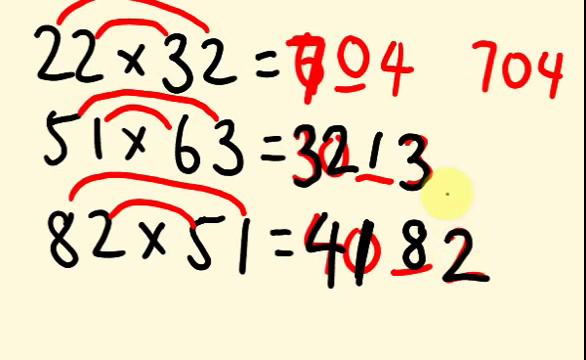 22 × 32 = 704 704
51 × 63 = 3213
82 × 51 = 4182